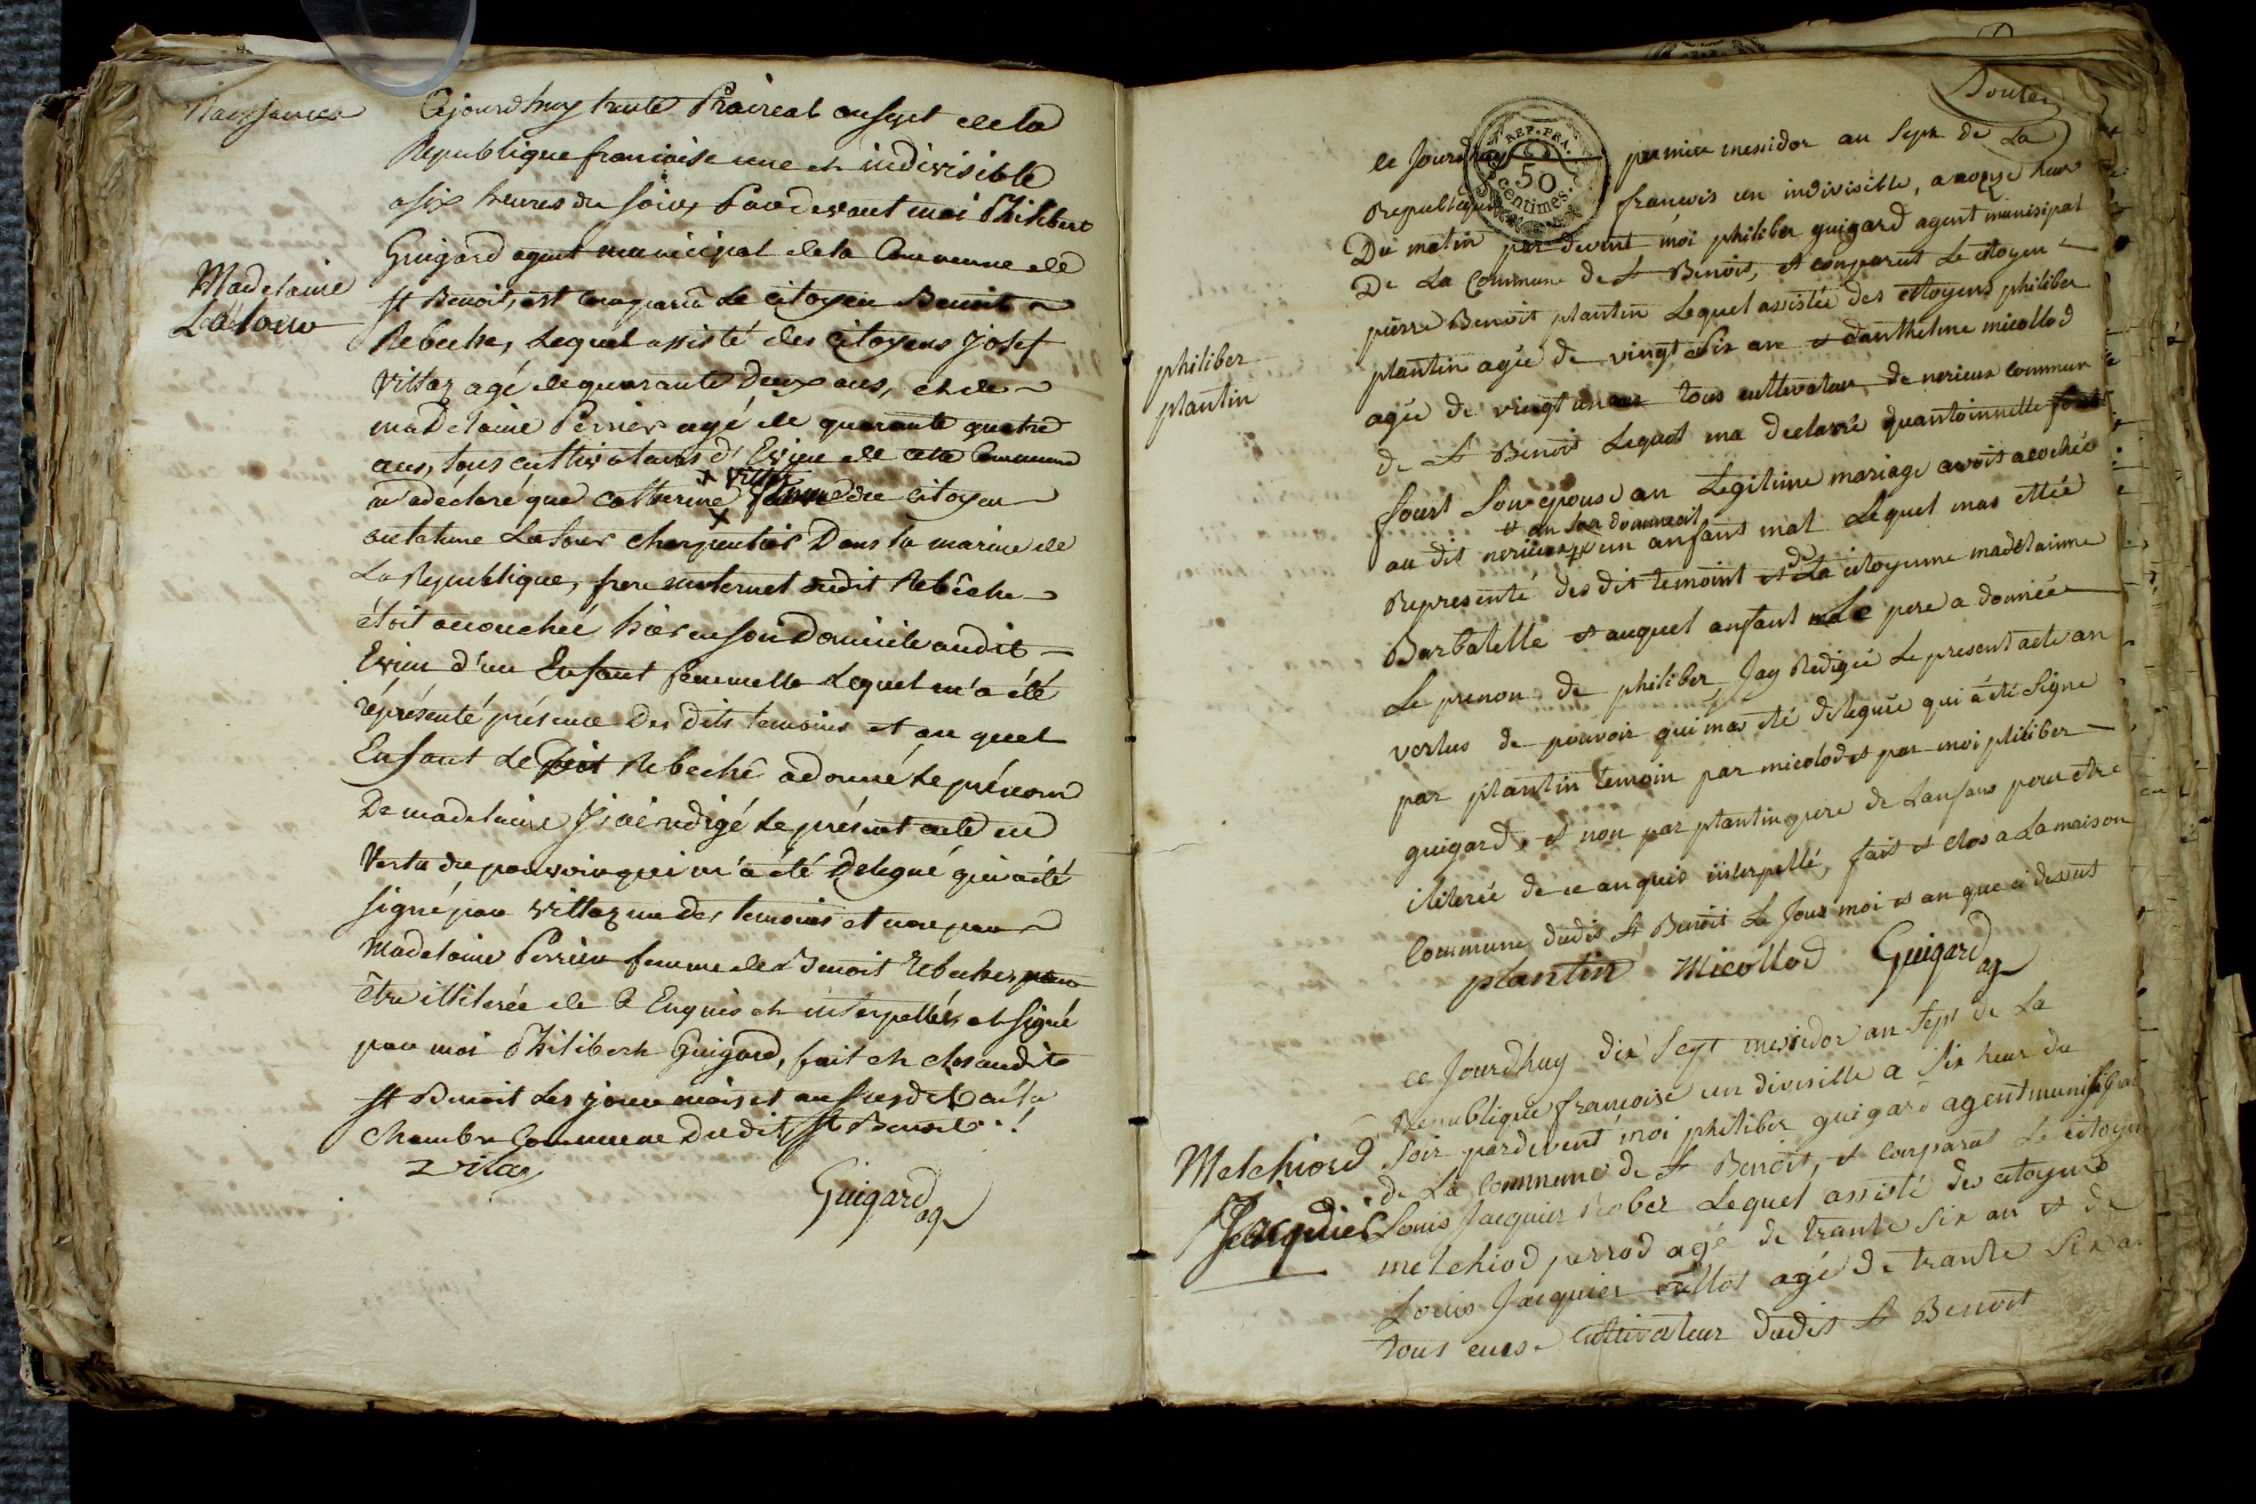 Naissance
Cejourd'huy trente Prairéal an sept de la
Republique francoise une et indivisible
a six heures du soir, Par devant moi Philibert
Guigard agent municipal de la Commune de
Madelaine
Latour
st Benoit, est comparu Le citoyen Benoit
Rebeche, Lequel assisté des citoyens Josef
Vittoz agé de quarante Deux ans, et de
madelaine Perrier agé de quarante quatre
ans, tous cultivateurs d'Evieu de cette Commune
x Vittoz
m'a déclaré que Catherine x femme du citoyen
Latour charpentier Dans la marine de
La Republique, frere maternel dudit Rebêche
étoit accouchée hier en son Domicile audit
Evieu d'un Enfant femmelle Lequel m'a été
réprésenté présence Des dits temoins et au quel
Enfant Le dit Rebeche a donné Le prénom
De madelaine J'ai redigé Le présent acte en
Vertu du pouvoir qui m'a été Delegué qui a été
signé par Vittoz un des temoins et non par
Madelaine Perrier femme de Benoit Rebeche pour
être illiterée de ce Enquis et interpellée, et signé
par moi Philibert Guigard, fait et clos audit
st Benoit Les jour mois et an susdit a la
Chambre Commune Dudit st Benoit !
vitoz
Guigard ag
Douten
REP. FRA.
50
centimes.
ce Jourdhuy premier messidor an Sept de La
Republique francois un indivisible, a honze heur
Du matin par devent moi philiber guigard agent munisipal
De La Commune de st Benoit, et conparut Le citoyen
pierre Benoit plantin Lequel assistée des citoyens philiber
philiber
plantin
plantin agée de vingt six an et danthelme micollod
agée de vingt un an tous cultivateur de nerieux commun
de st Benoit Lequel ma declarré quantoinnette
fourt Son epouse an Legitime mariage avoit acochée
et an son domiccil
au dit nerieux un anfant mal Lequel mas ettée
Representé des dit temoint et de La citoyenne madelainne
Barbatelle et auquel anfant Le pere a donniée
Le prenon de philiber Jay Redigée Le present acte an
vertus de pouvoir qui mas eté deleguée qui à eté Signe
par plantin temoin par micolod et par moi philiber
guigard, et non par plantin pere de Lanfans pour etre
iliterée de ce anquis interpellé, fait et clos a La maison
Commune dudit st Benoit Le Jour moi et an que ci desut
plantin Micollod Guigard ag
ce Jourdhuy dix Sept messidor an Sept de La
Republique francoise un divisille a Six heur du
Melchiord
Jacquier
Soir pardevent moi philiber guigard agent munisipal
de La Commune de st Benoit, et conparut Le citoyen
Louis Jacquier Rober Lequel assisté des citoyens
melchiod perrod agé de trante Six an et de
Louis Jacquier cullet agé de trante Six an
tous eux Cultivateur dudit st Benoit